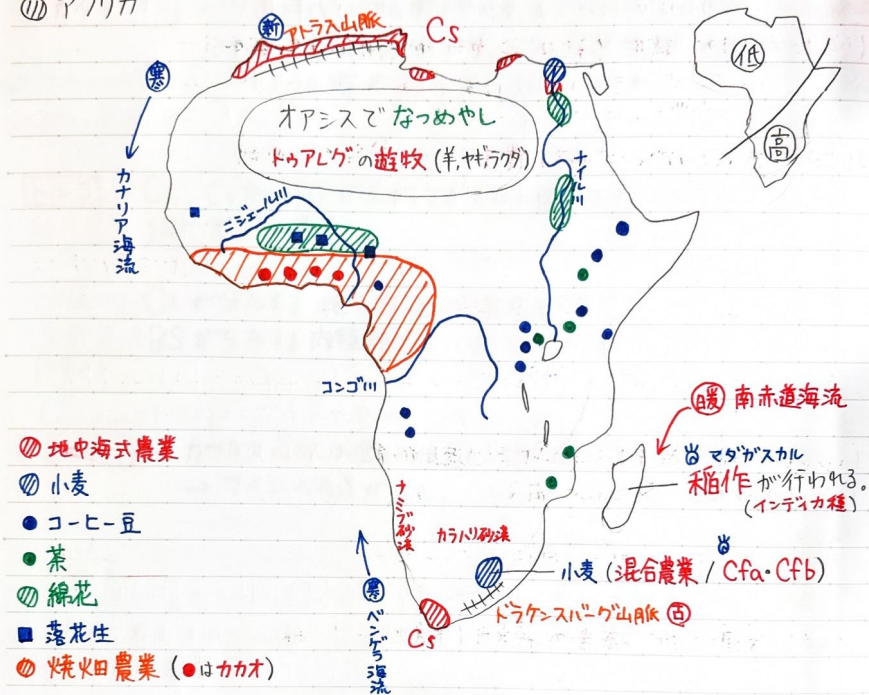 アフリカ
新 アトラス山脈
Cs
寒
カナリア海流
オアシスで なつめやし
トゥアレグの遊牧 (羊,ヤギ,ラクダ)
ナイル川
低
高
ニジェール川
コンゴ川
暖 南赤道海流
マダガスカル
稲作が行われる。
(インディカ種)
ナミブ砂漠
カラハリ砂漠
小麦 (混合農業 / Cfa・Cfb)
ドラケンスバーグ山脈 古
Cs
寒
ベンゲラ海流
地中海式農業
小麦
コーヒー豆
茶
綿花
落花生
焼畑農業 (●はカカオ)